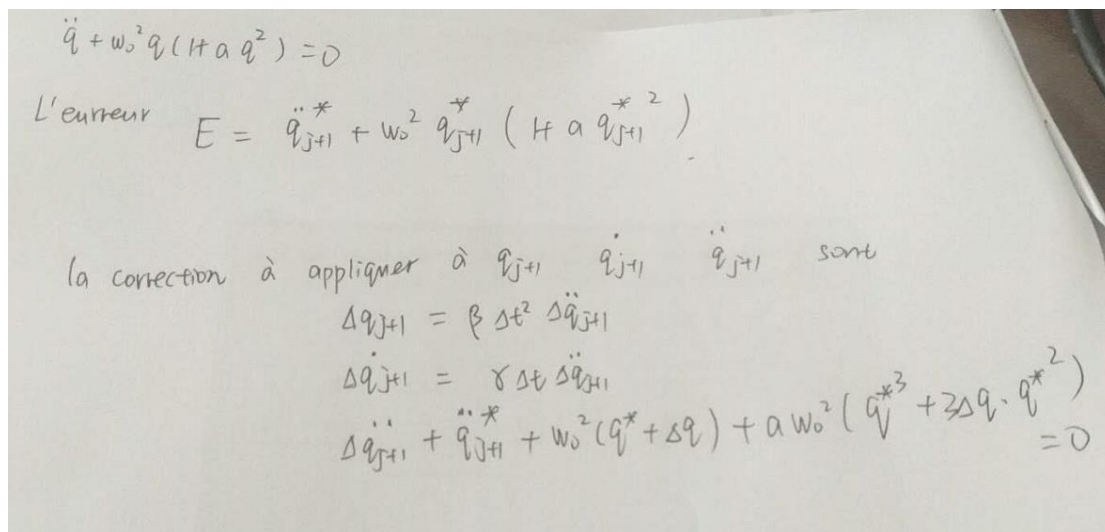 q̈ + ω₀² q (1 + a q²) = 0
L'eurreur E = q̈*ⱼ₊₁ + ω₀² q*ⱼ₊₁ (1 + a q*ⱼ₊₁²)
la correction à appliquer à qⱼ₊₁ q̇ⱼ₊₁ q̈ⱼ₊₁ sont
Δqⱼ₊₁ = β Δt² Δq̈ⱼ₊₁
Δq̇ⱼ₊₁ = γ Δt Δq̈ⱼ₊₁
Δq̈ⱼ₊₁ + q̈*ⱼ₊₁ + ω₀² (q* + Δq) + a ω₀² (q*³ + 3Δq · q*²) = 0